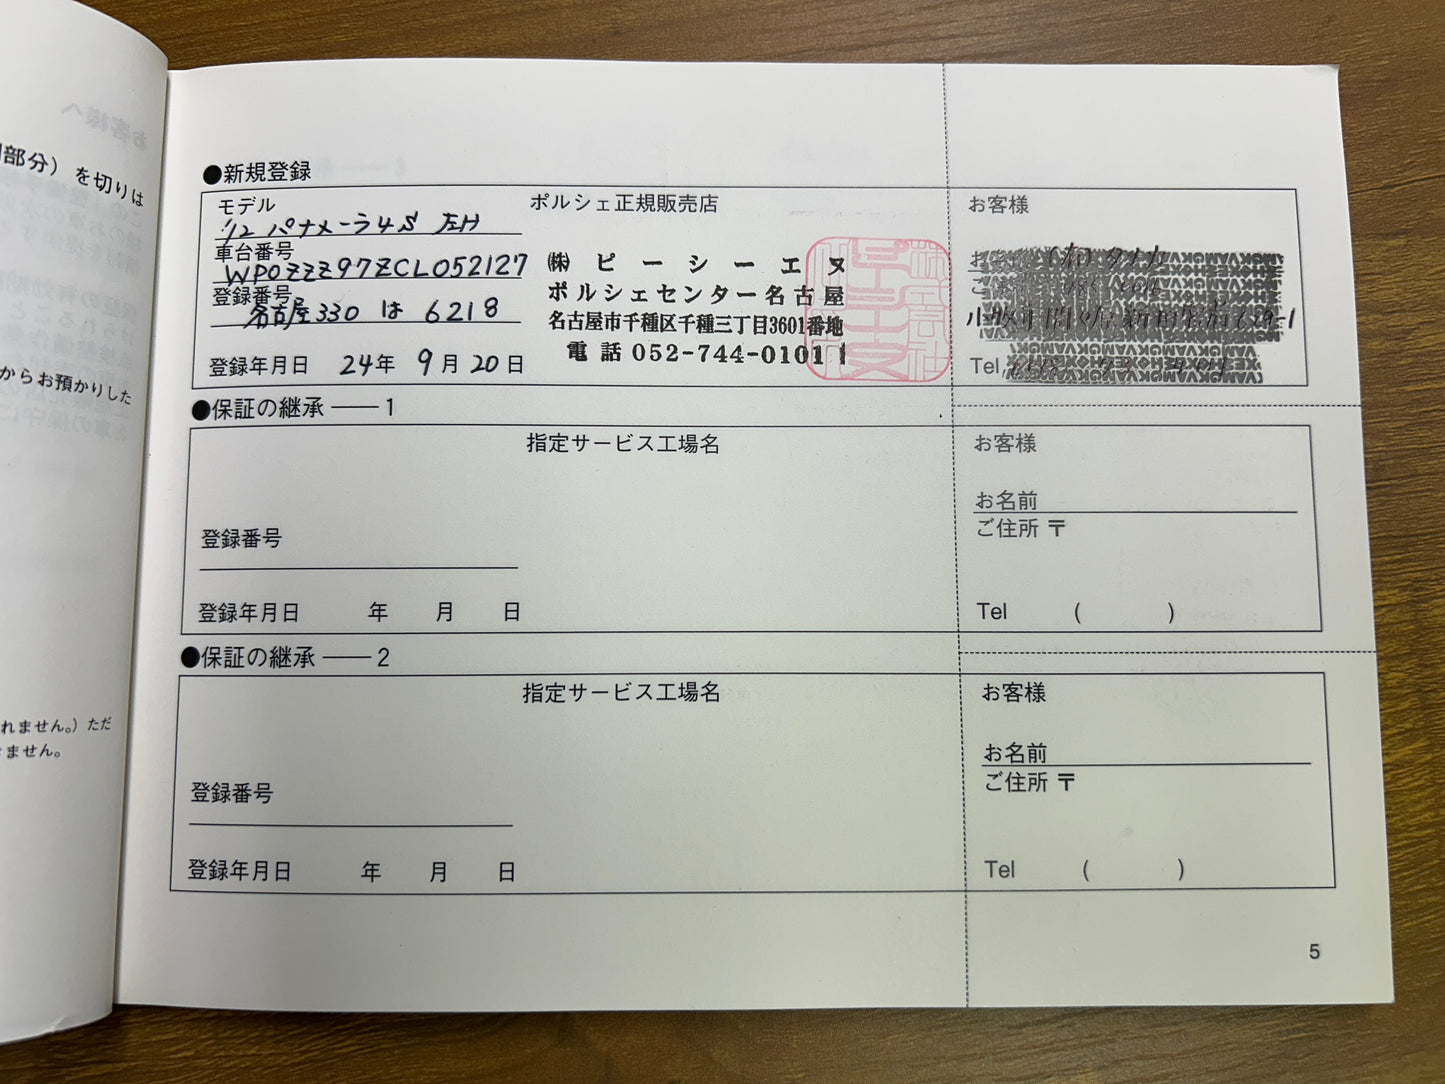 部分）を切りは
からお預かりした
れません。）ただ
ません。
●新規登録
モデル
'12 パナメーラ4S 左H
車台番号
WP0ZZZ97ZCL052127
登録番号
名古屋330 は 6218
登録年月日 24年 9月 20日
ポルシェ正規販売店
㈱ピーシーエヌ
ポルシェセンター名古屋
名古屋市千種区千種三丁目3601番地
電話 052-744-0101
お客様
Tel
●保証の継承 ── 1
指定サービス工場名
登録番号
登録年月日 年 月 日
お客様
お名前
ご住所 〒
Tel ( )
●保証の継承 ── 2
指定サービス工場名
登録番号
登録年月日 年 月 日
お客様
お名前
ご住所 〒
Tel ( )
5